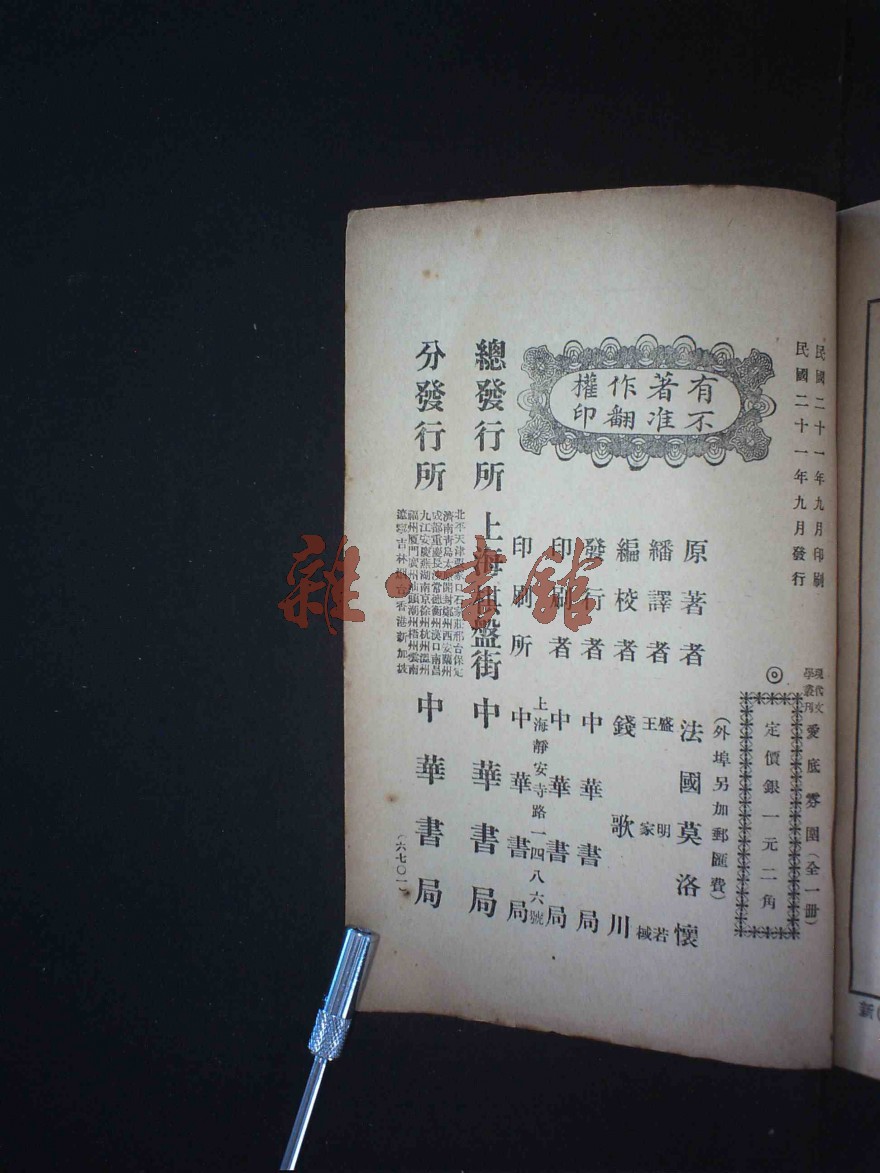 民國二十一年九月印刷
民國二十一年九月發行
現代文
學叢刊
愛底雰圍（全一冊）
◎定價銀一元二角
（外埠另加郵匯費）
有著作權
不准翻印
原著者 法國莫洛懷
繙譯者 盛明若
王家棫
編校者 錢歌川
發行者 中華書局
印刷者 中華書局
上海靜安寺路一四八六號
印刷所 中華書局
總發行所 上海棋盤街 中華書局
分發行所 中華書局
北平天津張家口石家莊邢台保定
濟南青島太原開封鄭州西安蘭州
成都重慶長沙常德衡州漢口南昌
九江安慶蕪湖南京徐州杭州溫州
福州廈門廣州汕頭潮州梧州雲南
遼寧吉林 香港新加坡
（六七〇一）
雜·書館
新